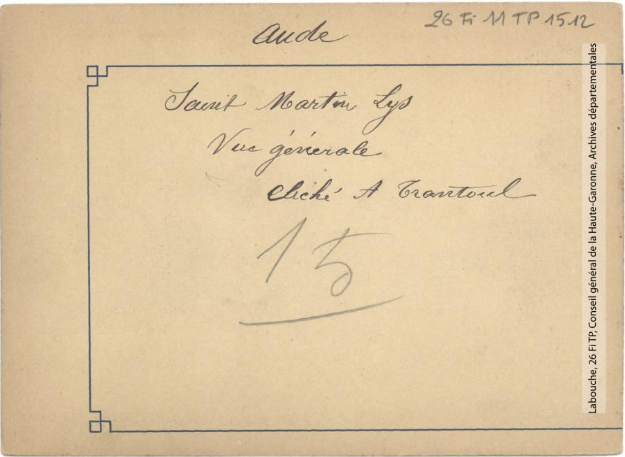 Aude
26 Fi 11 TP 1512
Saint Martin Lys
Vue générale
Cliché A Trantoul
15
Labouche, 26 Fi TP, Conseil général de la Haute-Garonne, Archives départementales